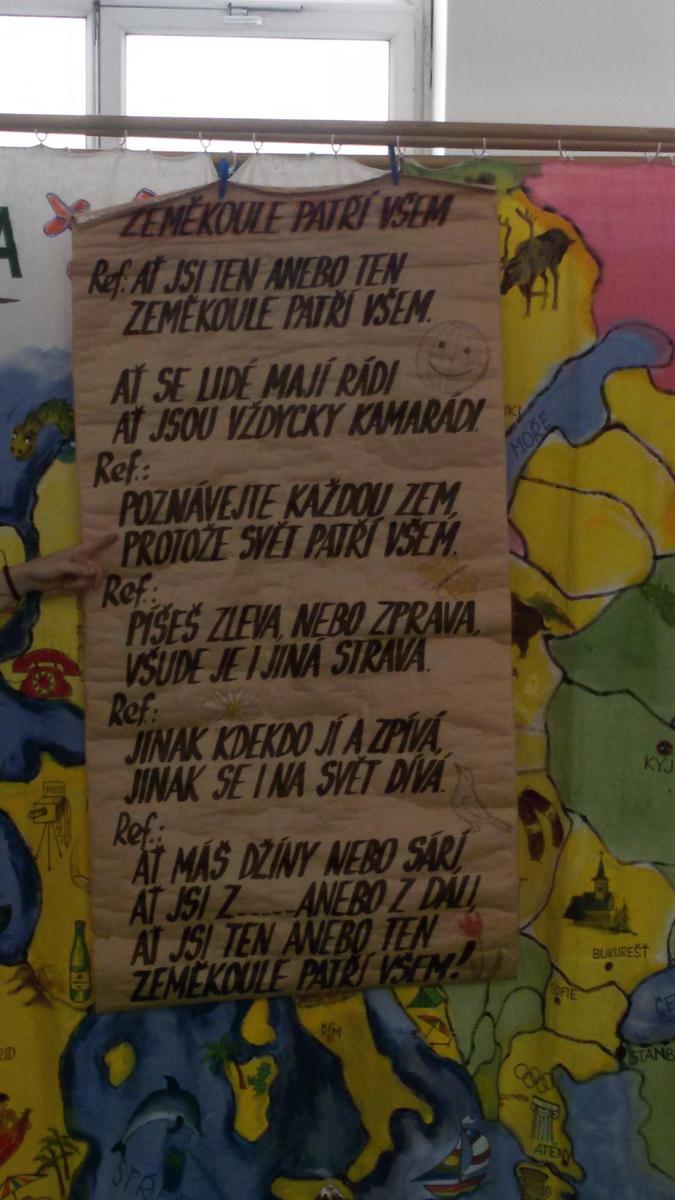 ZEMĚKOULE PATŘÍ VŠEM
Ref: AŤ JSI TEN ANEBO TEN
ZEMĚKOULE PATŘÍ VŠEM.
AŤ SE LIDÉ MAJÍ RÁDI
AŤ JSOU VŽDYCKY KAMARÁDI.
Ref.:
POZNÁVEJTE KAŽDOU ZEM,
PROTOŽE SVĚT PATŘÍ VŠEM.
Ref.:
PÍŠEŠ ZLEVA, NEBO ZPRAVA,
VŠUDE JE I JINÁ STRAVA.
Ref.:
JINAK KDEKDO JÍ A ZPÍVÁ,
JINAK SE I NA SVĚT DÍVÁ.
Ref.:
AŤ MÁŠ DŽÍNY NEBO SÁRÍ,
AŤ JSI Z_____ANEBO Z DÁLI,
AŤ JSI TEN ANEBO TEN
ZEMĚKOULE PATŘÍ VŠEM!
A
MOŘE
KYJ
BUKUREŠŤ
SOFIE
ČE
ISTANB
ŘÍM
RID
OLYMPIA
ATÉNY
STŘE